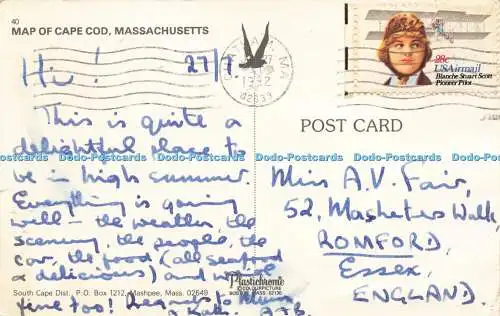 40
MAP OF CAPE COD, MASSACHUSETTS
Hi! 27/7
This is quite a
delightful place to
be in high summer.
Everything is going
well - the weather, the
scenery, the people, the
car, the food (all seafood
& delicious) and we're
fine too! Regards to Mum
& Kath. ATB
South Cape Dist., P.O. Box 1212, Mashpee, Mass. 02649
Plastichrome
COLOURPICTURE
BOSTON, MASS. 02130
CHATHAM, MA
02633
28c
USAirmail
Blanche Stuart Scott
Pioneer Pilot
POST CARD
Miss A.V. Fair,
52, Mashiters Walk,
ROMFORD,
Essex,
ENGLAND.
Dodo-Postcards Dodo-Postcards Dodo-Postcards Dodo-Postcards Dodo-Postcards